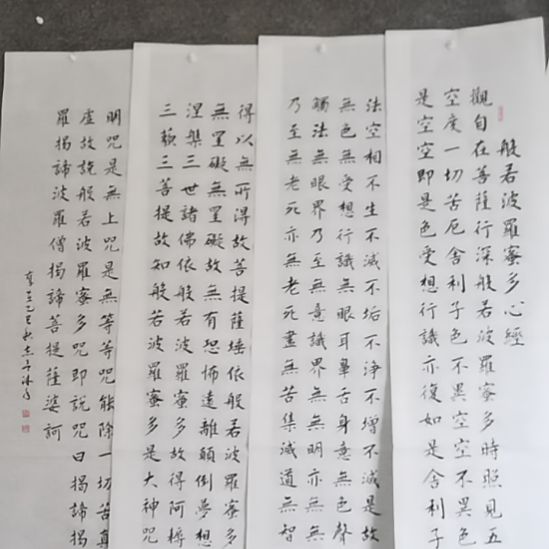 般若波羅蜜多心經
觀自在菩薩行深般若波羅蜜多時照見五
空度一切苦厄舍利子色不異空空不異色
是空空即是色受想行識亦復如是舍利子
法空相不生不滅不垢不淨不增不減是故
無色無受想行識無眼耳鼻舌身意無色聲
觸法無眼界乃至無意識界無無明亦無無
乃至無老死亦無老死盡無苦集滅道無智
得以無所得故菩提薩埵依般若波羅蜜多
無罣礙無罣礙故無有恐怖遠離顛倒夢想
涅槃三世諸佛依般若波羅蜜多故得阿耨
三藐三菩提故知般若波羅蜜多是大神咒
明咒是無上咒是無等等咒能除一切苦真
虛故說般若波羅蜜多咒即說咒曰揭諦揭
羅揭諦波羅僧揭諦菩提薩婆訶